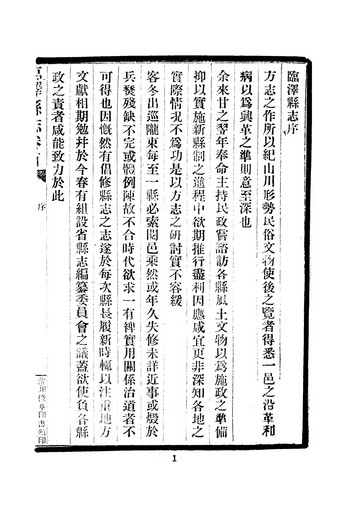 臨澤縣志序
方志之作所以紀山川形勢民俗文物使後之覽者得悉一邑之沿革利
病以爲興革之準則意至深也
余來甘之翌年奉命主持民政嘗諮訪各縣風土文物以爲施政之準備
抑以實施新縣制之進程中欲期推行盡利因應咸宜更非深知各地之
實際情況不爲功是以方志之硏討實不容緩
客冬出巡隴東每至一縣必索閱邑乘然或年久失修未詳近事或燬於
兵燹殘缺不完或體例陳故不合時代欲求一有裨實用關係治道者不
可得也因慨然有倡修縣志之志遂於每次縣長履新時輒以注重地方
文獻相期勉幷於今春有組設省縣志編纂委員會之議蓋欲使負各縣
政之責者咸能致力於此
縣志
序
1